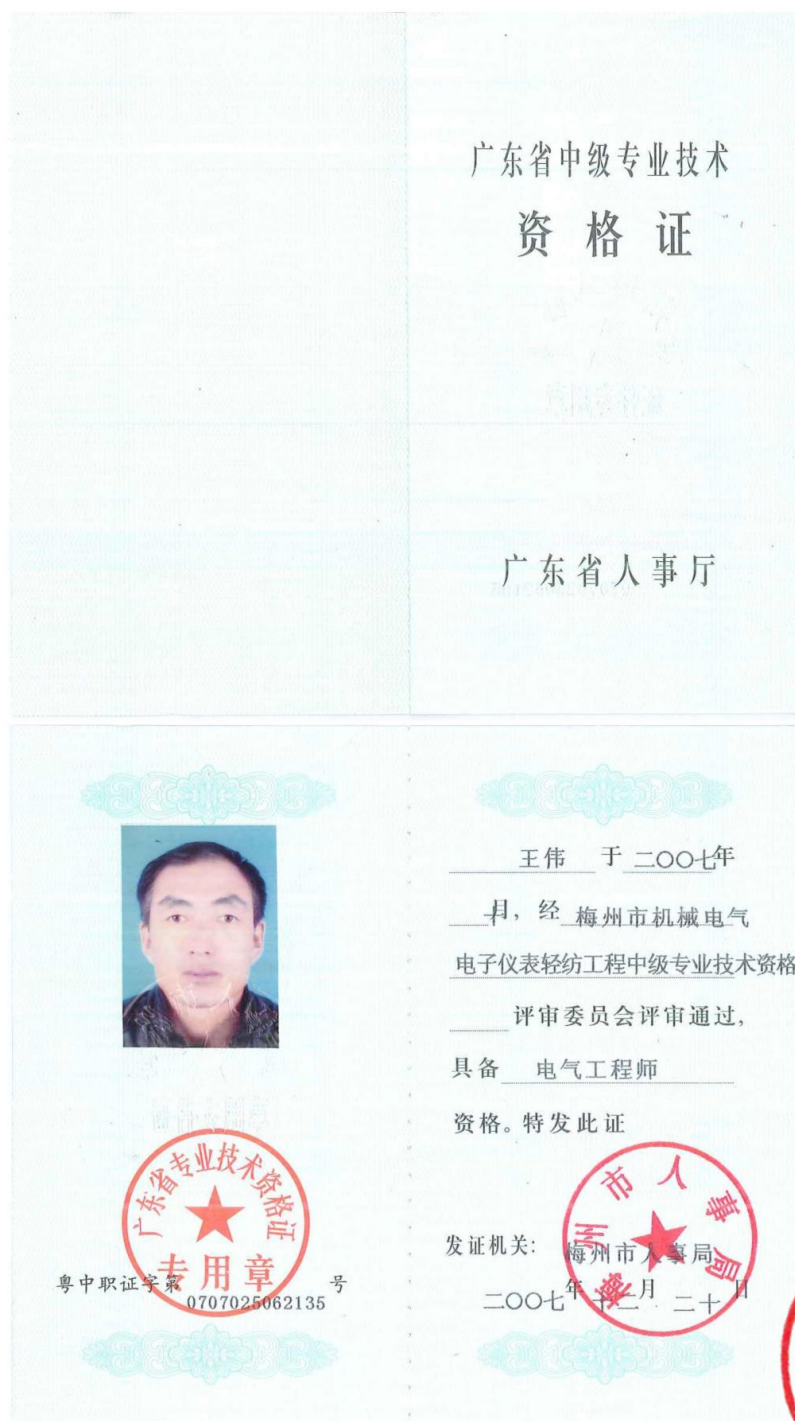 广东省中级专业技术
资格证
广东省人事厅
广东省专业技术资格证
专用章
粤中职证字第 0707025062135 号
王伟 于 二〇〇七年
十月，经 梅州市机械电气
电子仪表轻纺工程中级专业技术资格
评审委员会评审通过，
具备 电气工程师
资格。特发此证
梅州市人事局
发证机关： 梅州市人事局
二〇〇七年十二月二十日